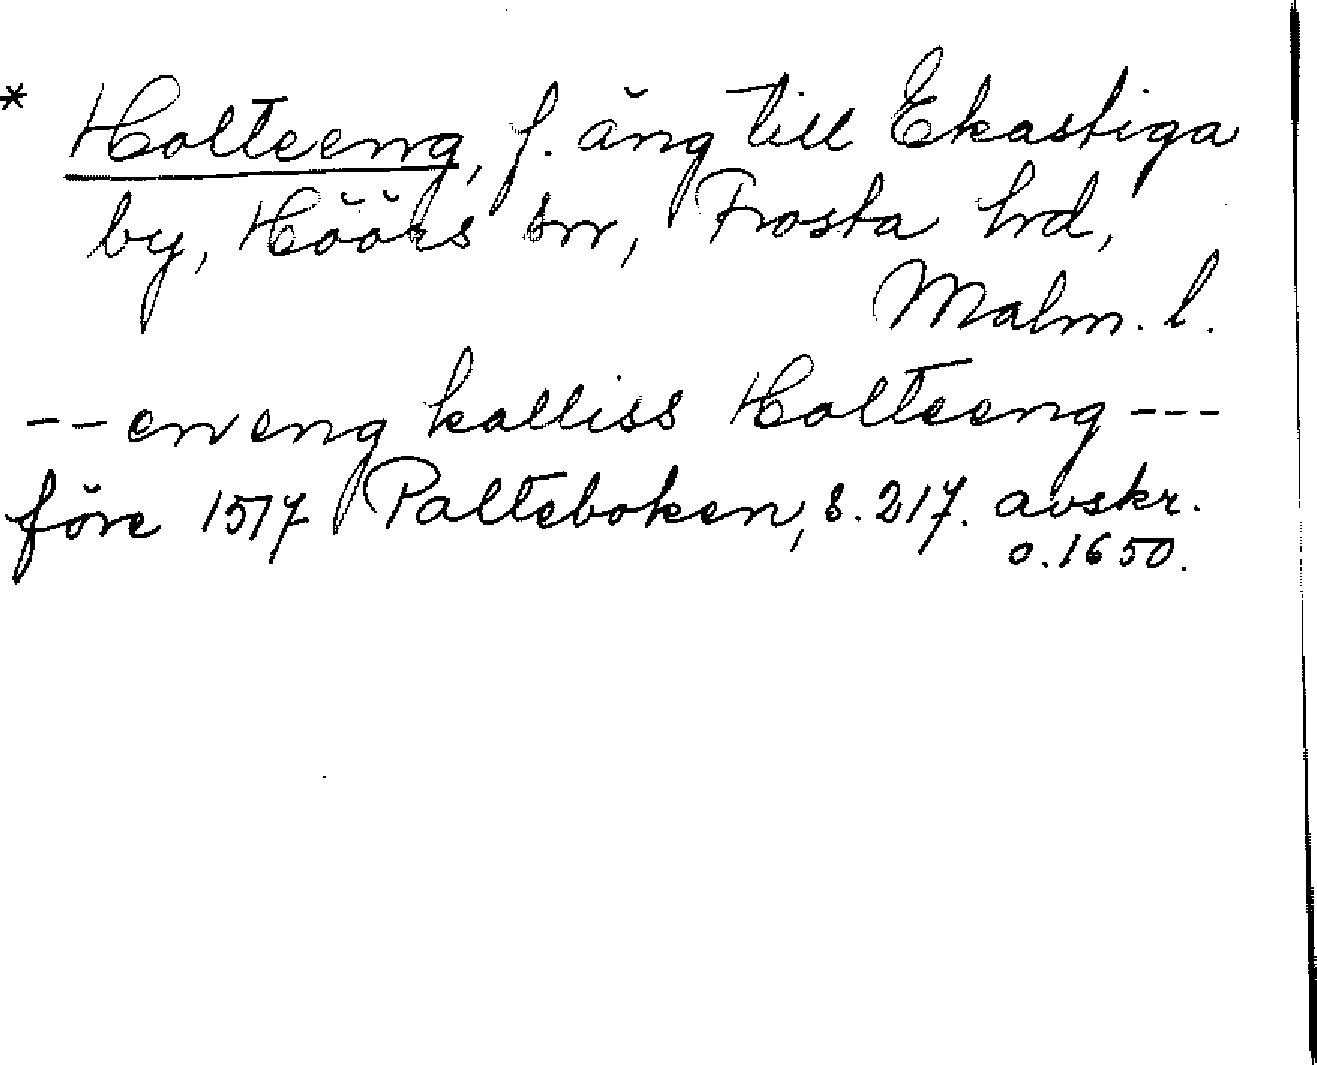 * Holteeng, f. äng till Ekastiga
by, Höörs snr, Frosta hrd,
Malm. l.
-- en eng kalliss Holteeng ---
före 1517 Palteboken, s. 217. avskr.
o. 1650.